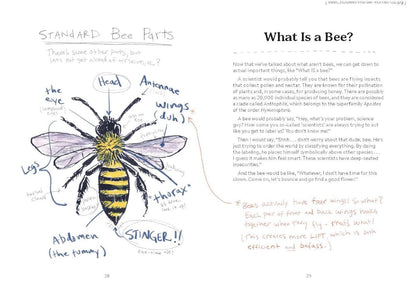 STANDARD Bee Parts
There's some other parts, but
Head
Antennae
the eye
Wings (duh)
Legs
thorax
Abdomen
(the tummy)
STINGER!!
28
What Is a Bee?
Now that we've talked about what aren't bees, we can get down to
actual important things, like "What IS a bee?"
A scientist would probably tell you that bees are flying insects
that collect pollen and nectar. They are known for their pollination
of plants and, in some cases, for producing honey. There are possibly
as many as 20,000 individual species of bees, and they are considered
a clade called Anthophila, which belongs to the superfamily Apoidea
of the order Hymenoptera.
A bee would probably say, "Hey, what's your problem, science
guy? How come you so-called 'scientists' are always trying to act
like you get to label us? You don't know me!"
Then I would say, "Shhh ... don't worry about that dude, bee. He's
just trying to order the world by classifying everything. By doing
the labeling, he places himself symbolically above other species ...
I guess it makes him feel smart. These scientists have deep-seated
insecurities."
And the bee would be like, "Whatever, I don't have time for this
clown. C'mon, let's bounce and go find a good flower!"
* Bees actually have four wings! So what?
Each pair of front and back wings hooks
together when they fly - that's what!
This creates more LIFT which is both
efficient and badass.
29